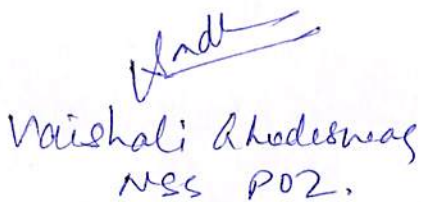 Vaishali Ghodeswar
NSS POZ.